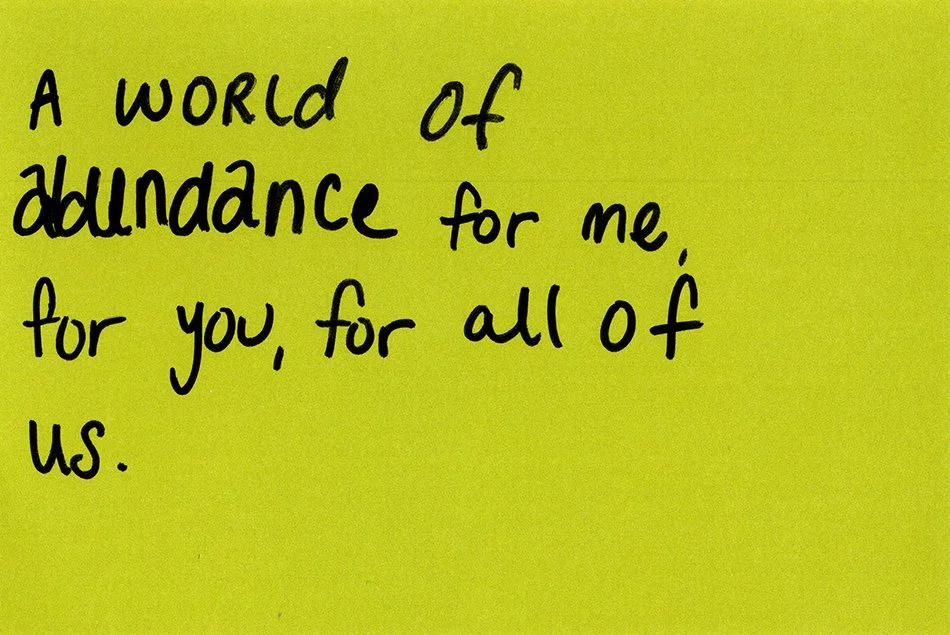 A WORLD of
abundance for me,
for you, for all of
us.